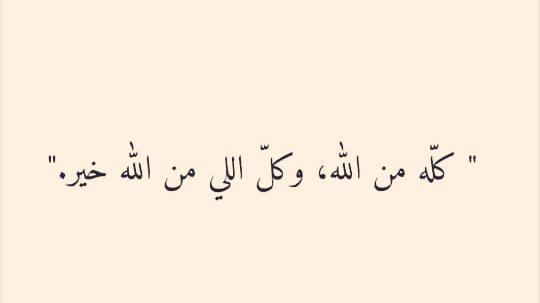 " كلّه من الله، وكلّ اللي من الله خير."